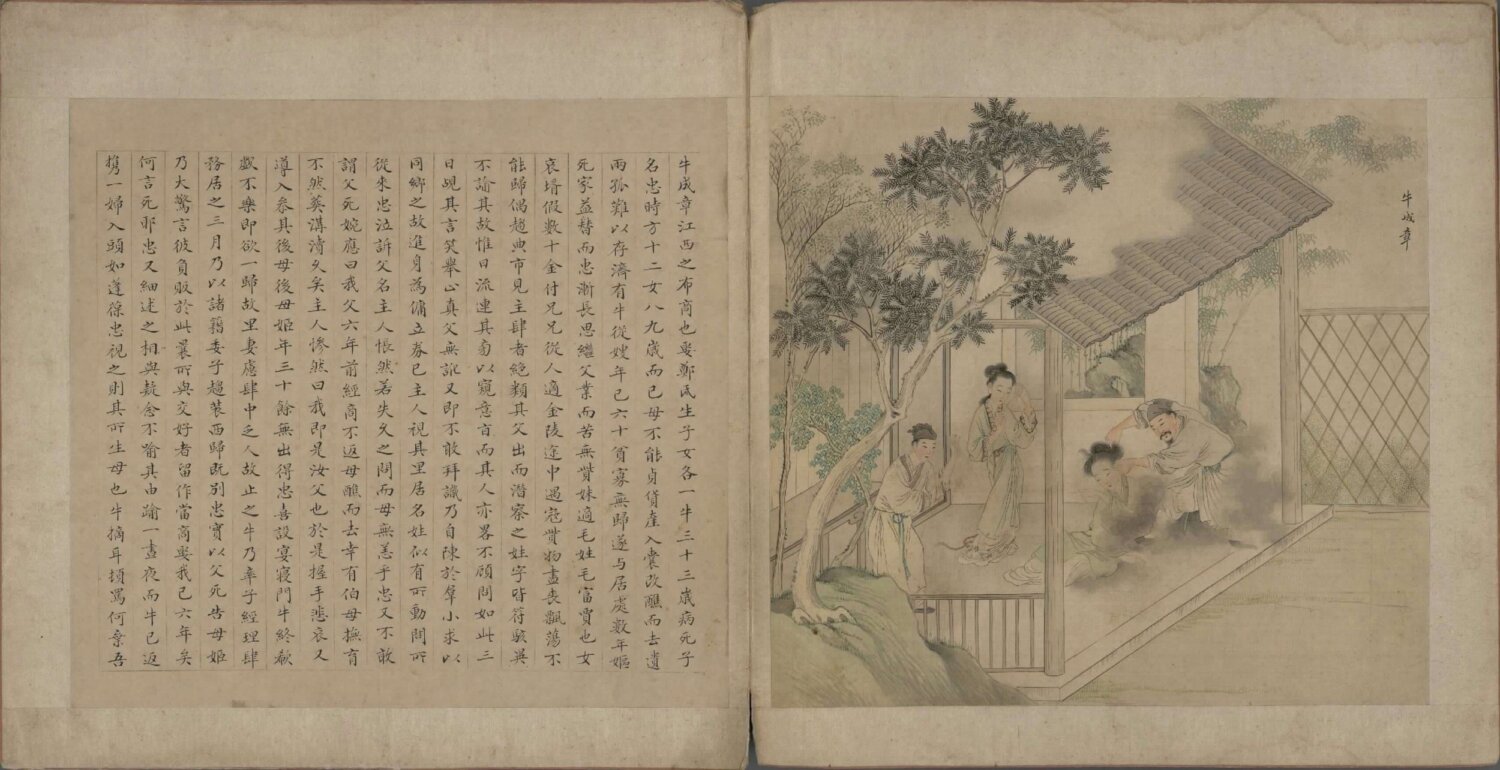 牛成章
牛成章江西之布商也娶鄭氏生子女各一牛三十三歲病死子
名忠時方十二女八九歲而已母不能貞貨產入囊改醮而去遺
兩孤難以存濟有牛從嫂年已六十貧寡無歸遂与居處數年嫗
死家益替而忠漸長思繼父業而苦無貲妹適毛姓毛富賈也女
哀壻假數十金付兄兄從人適金陵途中遇寇貲物盡喪飄蕩不
能歸偶趨典市見主肆者絕類其父出而潛察之姓字皆符駭異
不諭其故惟日流連其旁以窺意旨而其人亦畧不顧問如此三
日覘其言笑舉止真父無訛又即不敢拜識乃自陳於羣小求以
同鄉之故進身為傭立券已主人視其里居名姓似有所動問所
從來忠泣訴父名主人悵然若失久之問而母無恙乎忠又不敢
謂父死婉應曰我父六年前經商不返母醮而去幸有伯母撫育
不然葬溝瀆久矣主人慘然曰我即是汝父也於是握手悲哀又
導入参其後母後母姬年三十餘無出得忠喜設宴寢門牛終欷
歔不樂即欲一歸故里妻慮肆中乏人故止之牛乃率子經理肆
務居之三月乃以諸籍委子趨裝西歸既別忠實以父死告母姬
乃大驚言彼負販於此曩所與交好者留作當商娶我已六年矣
何言死耶忠又細述之相與疑念不喻其由踰一晝夜而牛已返
携一婦人頭如蓬葆忠視之則其所生母也牛摘耳頓罵何棄吾